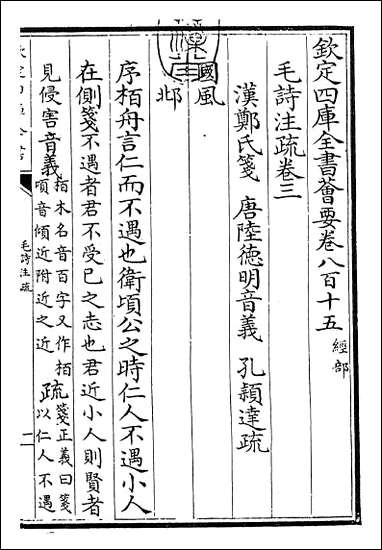 欽定四庫全書薈要卷八百十五 經部
毛詩注疏卷三
漢鄭氏箋 唐陸德明音義 孔穎達疏
國風
邶
序栢舟言仁而不遇也衛頃公之時仁人不遇小人
在側箋不遇者君不受己之志也君近小人則賢者
見侵害音義栢木名音百字又作柏
頃音傾近附近之近疏箋正義曰箋
以仁人不遇
毛詩注疏